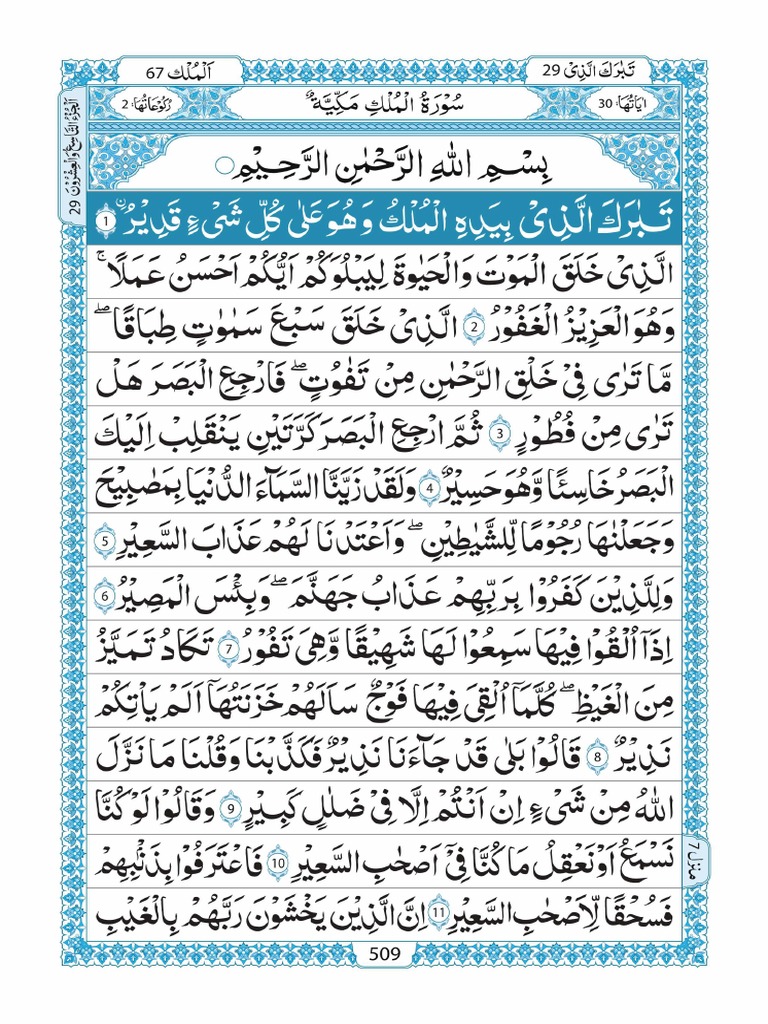 تَبٰرَكَ الَّذِیْ 29
اَلْمُلْك 67
اٰیَاتُهَا: 30
سُوْرَةُ الْمُلْكِ مَكِّیَّةٌ
رُكُوْعَاتُهَا: 2
اَلْجُزْءُ التَّاسِعُ وَالْعِشْرُوْنَ 29
بِسْمِ اللّٰهِ الرَّحْمٰنِ الرَّحِیْمِ
تَبٰرَكَ الَّذِیْ بِیَدِهِ الْمُلْكُ وَهُوَ عَلٰى كُلِّ شَیْءٍ قَدِیْرُ ۙ 1
الَّذِیْ خَلَقَ الْمَوْتَ وَالْحَیٰوةَ لِیَبْلُوَكُمْ اَیُّكُمْ اَحْسَنُ عَمَلًا ؕ
وَهُوَ الْعَزِیْزُ الْغَفُوْرُ 2 الَّذِیْ خَلَقَ سَبْعَ سَمٰوٰتٍ طِبَاقًا ؕ
مَا تَرٰى فِیْ خَلْقِ الرَّحْمٰنِ مِنْ تَفٰوُتٍ ؕ فَارْجِعِ الْبَصَرَ هَلْ
تَرٰى مِنْ فُطُوْرٍ 3 ثُمَّ ارْجِعِ الْبَصَرَ كَرَّتَیْنِ یَنْقَلِبْ اِلَیْكَ
الْبَصَرُ خَاسِئًا وَّهُوَ حَسِیْرٌ 4 وَلَقَدْ زَیَّنَّا السَّمَآءَ الدُّنْیَا بِمَصٰبِیْحَ
وَجَعَلْنٰهَا رُجُوْمًا لِّلشَّیٰطِیْنِ ؕ وَاَعْتَدْنَا لَهُمْ عَذَابَ السَّعِیْرِ 5
وَلِلَّذِیْنَ كَفَرُوْا بِرَبِّهِمْ عَذَابُ جَهَنَّمَ ؕ وَبِئْسَ الْمَصِیْرُ 6
اِذَاۤ اُلْقُوْا فِیْهَا سَمِعُوْا لَهَا شَهِیْقًا وَّهِیَ تَفُوْرُ 7 تَكَادُ تَمَیَّزُ
مِنَ الْغَیْظِ ؕ كُلَّمَاۤ اُلْقِیَ فِیْهَا فَوْجٌ سَاَلَهُمْ خَزَنَتُهَاۤ اَلَمْ یَاْتِكُمْ
نَذِیْرٌ 8 قَالُوْا بَلٰى قَدْ جَآءَنَا نَذِیْرٌ فَكَذَّبْنَا وَقُلْنَا مَا نَزَّلَ
اللّٰهُ مِنْ شَیْءٍ اِنْ اَنْتُمْ اِلَّا فِیْ ضَلٰلٍ كَبِیْرٍ 9 وَقَالُوْا لَوْ كُنَّا
نَسْمَعُ اَوْ نَعْقِلُ مَا كُنَّا فِیْۤ اَصْحٰبِ السَّعِیْرِ 10 فَاعْتَرَفُوْا بِذَنْۢبِهِمْ
فَسُحْقًا لِّاَصْحٰبِ السَّعِیْرِ 11 اِنَّ الَّذِیْنَ یَخْشَوْنَ رَبَّهُمْ بِالْغَیْبِ
منزل ٧
509